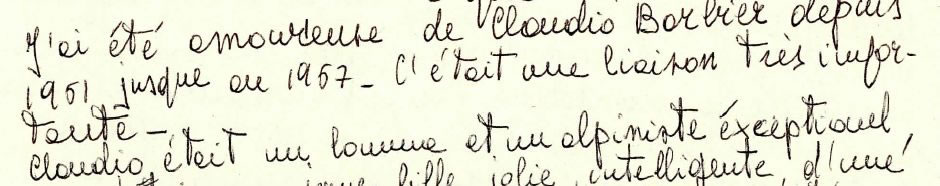 J'ai été amoureuse de Claudio Barbier depuis
1961 jusque au 1967 - C'était une liaison très impor-
tante -
Claudio était un homme et un alpiniste éxceptionel,
jeune fille jolie, intelligente, d'une